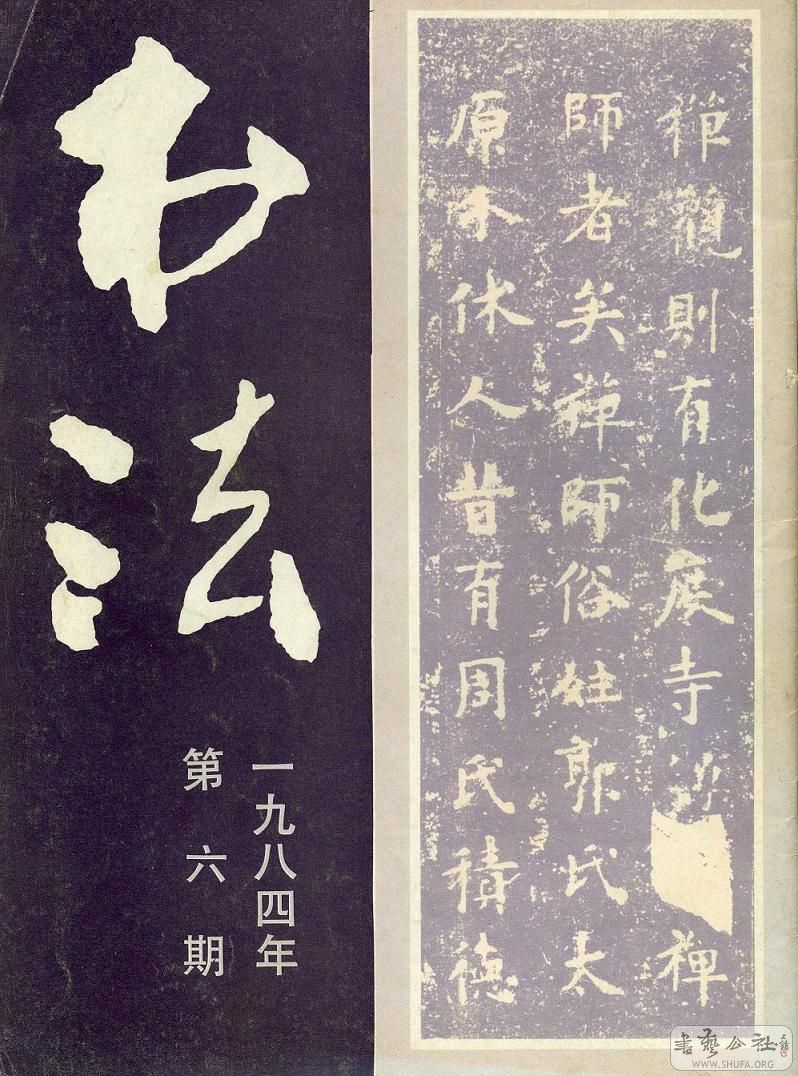 书法
一九八四年
第六期
禪觀則有化度寺禪
師者矣禪師俗姓郭氏太
原介休人昔有周氏積德
書藝公社
WWW.SHUFA.ORG